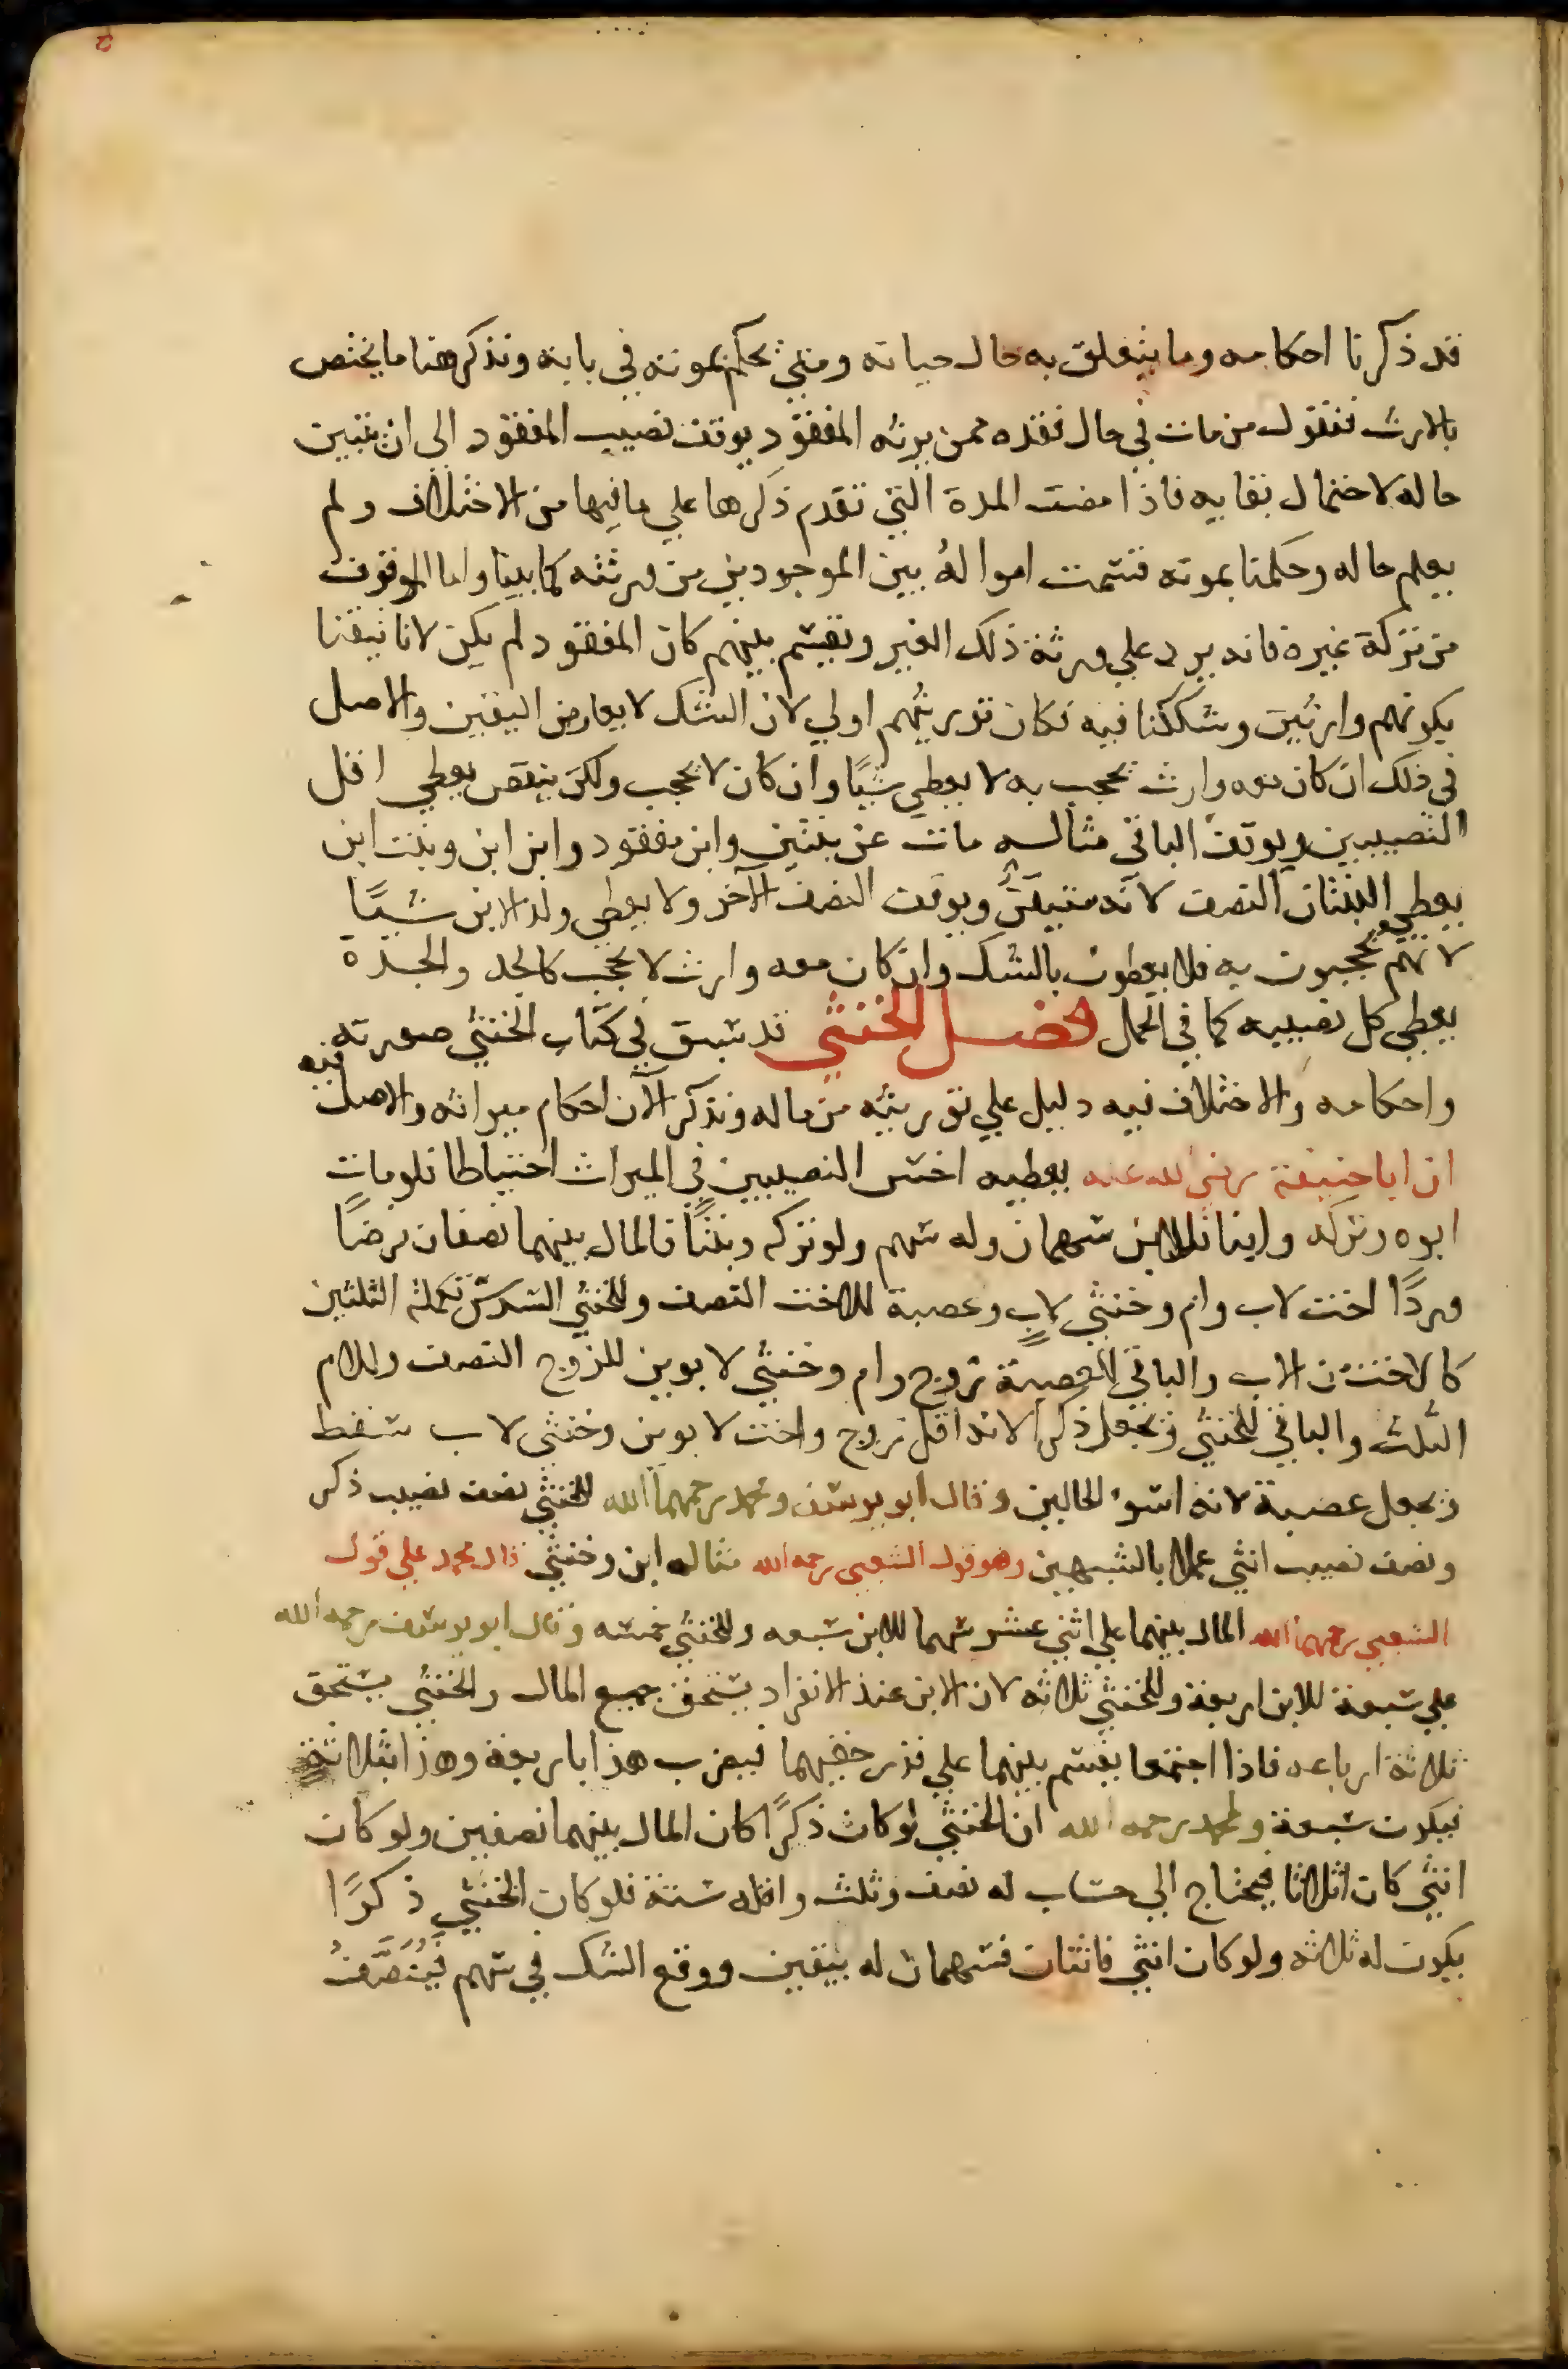 قد ذكرنا احكامه وما يتعلق به حال حياته ومتى يحكم بموته في بابه ونذكر هنا ما يختص
بالارث فنقول من مات في حال فقده ممن يرثه المفقود يوقف نصيب المفقود الى ان يتبين
حاله لاحتمال بقايه فاذا مضت المدة التي تقدم ذكرها علي ما فيها من الاختلاف ولم
يعلم حاله وحكمنا بموته قسمت امواله بين الموجودين من ورثته كما بينا واما الموقوف
من تركة غيره فانه يرد علي ورثة ذلك الغير ويقسم بينهم كان المفقود لم يكن لانا تيقنا
بكونهم وارثين وشككنا فيه فكان توريثهم اولي لان الشك لا يعارض اليقين والاصل
في ذلك ان كان معه وارث يحجب به لا يعطي شيًا وان كان لا يحجب ولكن ينقص يعطي اقل
النصيبين ويوقف الباقي مثاله مات عن بنتين وابن مفقود وابن ابن وبنت ابن
يعطي البنتان النصف لانه متيقن ويوقف النصف الآخر ولا يعطي ولد الابن شيًا
لانهم يحجبون به فلا يعطون بالشك وان كان معه وارث لا يحجب كالجد والجدة
يعطي كل نصيبه كما في الحمل فصل الخنثي قد سبق في كتاب الخنثي صورته
واحكامه والاختلاف فيه دليل علي توريثه من ماله ونذكر الآن احكام ميراثه والاصل فيه
ان ابا حنيفة رضي الله عنه يعطيه اخس النصيبين في الميراث احتياطا فلو مات
ابوه وتركه وابنا فللابن سهمان وله سهم ولو تركه وبنتًا فالمال بينهما نصفان فرضًا
وردًا اخت لاب وام وخنثي لاب وعصبة للاخت النصف وللخنثي السدس تكملة الثلثين
كالاخت من الاب والباقي للعصبة زوج وام وخنثي لابوين للزوج النصف وللام
الثلث والباقي للخنثي ويجعل ذكرا لانه اقل زوج واخت لابوين وخنثي لاب سقط
ويجعل عصبة لانه اسوء الحالين وقال ابو يوسف ومحمد رحمهما الله للخنثي نصف نصيب ذكر
ونصف نصيب انثي عملا بالشبهين وهو قول الشعبي رحمه الله مثاله ابن وخنثي قال محمد علي قول
الشعبي رحمهما الله المال بينهما علي اثني عشر سهما للابن سبعه وللخنثي خمسه وقال ابو يوسف رحمه الله
علي سبعة للابن اربعة وللخنثي ثلاثه لان الابن عند الانفراد يستحق جميع المال والخنثي يستحق
ثلاثة ارباعه فاذا اجتمعا يقسم بينهما علي قدر حقيهما فيضرب هذا باربعة وهذا بثلاثة
فيكون سبعة ولمحمد رحمه الله ان الخنثي لو كان ذكرًا كان المال بينهما نصفين ولو كان
انثي كان اثلاثا فيحتاج الي حساب له نصف وثلث واقله ستة فلو كان الخنثي ذكرًا
يكون له ثلاثه ولو كان انثي فاثنان فسهمان له بيقين ووقع الشك في سهم فيُنَصَّفُ